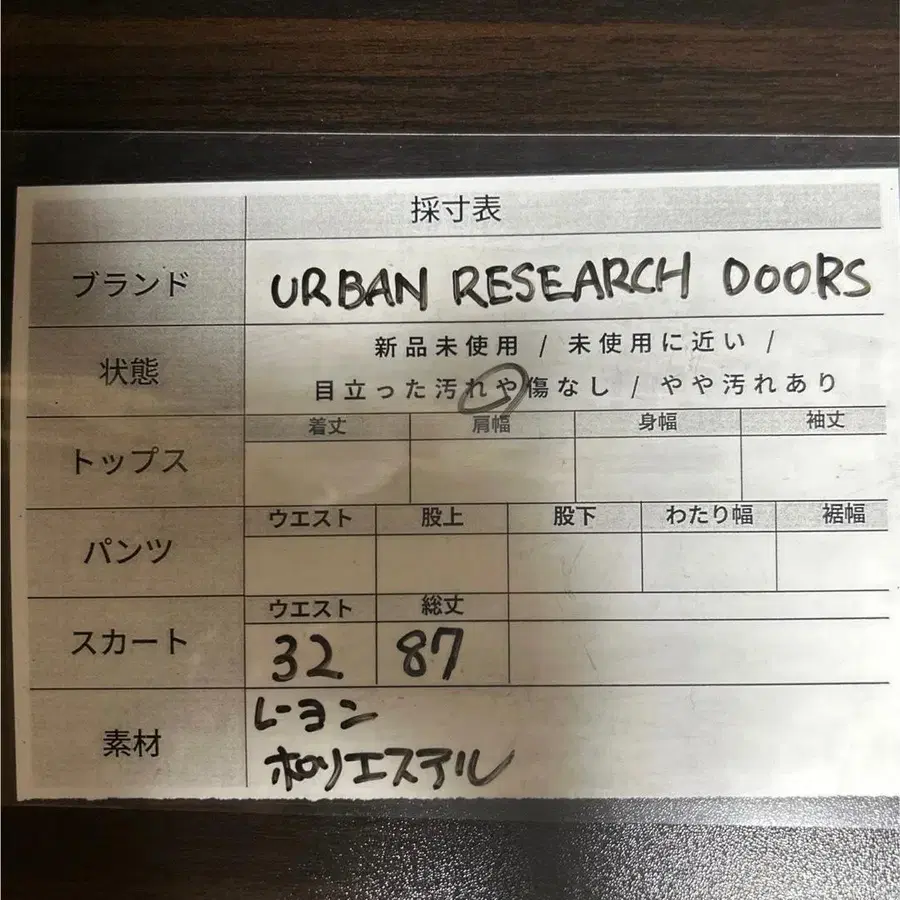 採寸表
ブランド URBAN RESEARCH DOORS
状態 新品未使用 / 未使用に近い /
目立った汚れや傷なし / やや汚れあり
着丈 肩幅 身幅 袖丈
トップス
ウエスト 股上 股下 わたり幅 裾幅
パンツ
ウエスト 総丈
スカート 32 87
素材 レーヨン
ポリエステル